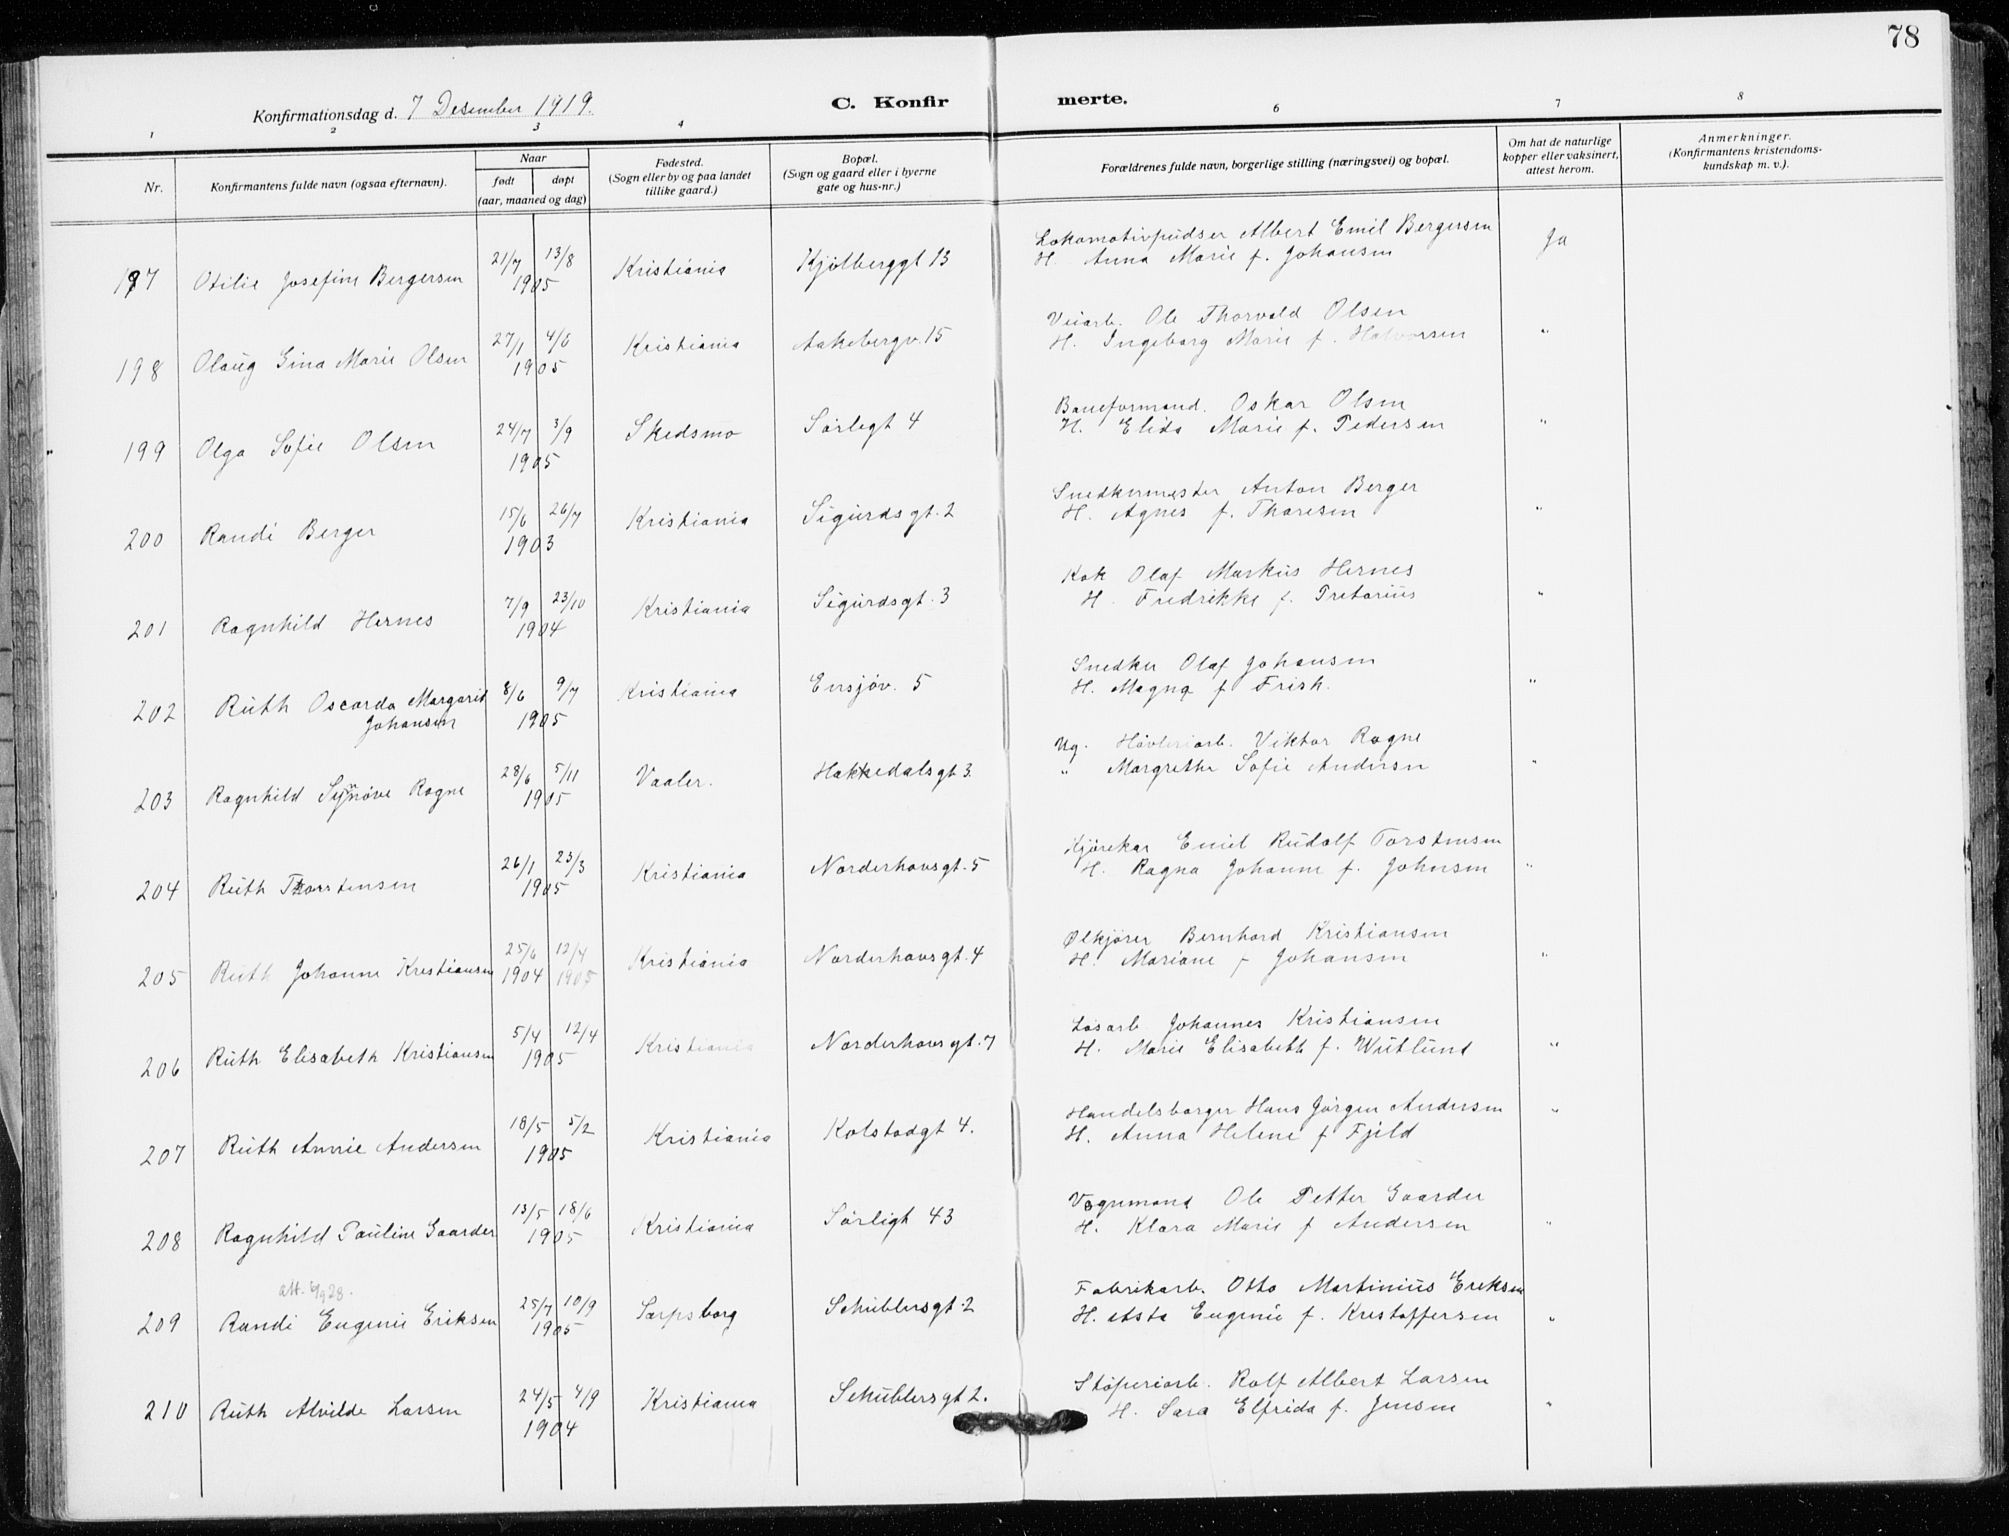 78
Konfirmationsdag d. 7 Desember 1919.
C. Konfir merte.
1 2 3 4 6 7 8
Nr.
Konfirmantens fulde navn (ogsaa efternavn).
Naar
født døpt
(aar, maaned og dag)
Fødested.
(Sogn eller by og paa landet
tillike gaard.)
Bopæl.
(Sogn og gaard eller i byerne
gate og hus-nr.)
Forældrenes fulde navn, borgerlige stilling (næringsvei) og bopæl.
Om hat de naturlige
kopper eller vaksinert,
attest herom.
Anmerkninger.
(Konfirmantens kristendoms-
kundskap m. v.).
Lokomotivpudser Albert Emil Bergersen
197 Otilie Josefine Bergersen 21/7 13/8 1905 Kristiania Kjølberggt 13 H. Anna Marie f. Johansen Ja
Veiarb. Ole Thorvald Olsen
198 Olaug Gina Marie Olsen 27/1 4/6 1905 Kristiania Aakebergv. 15 H. Ingeborg Marie f. Halvorsen "
Baneformand. Oskar Olsen
199 Olga Sofie Olsen 24/7 3/9 1905 Skedsmo Sørlegt 4 H. Elida Marie f. Pedersen "
Snedkermester Anton Berger
200 Randi Berger 15/6 26/7 1903 Kristiania Sigurdsgt. 2 H. Agnes f. Thoresen "
Kok Olaf Markus Hernes
201 Ragnhild Hernes 7/9 23/10 1904 Kristiania Sigurdsgt. 3 H. Fredrikke f. Pretorius "
Snedker Olaf Johansen
202 Ruth Oscarda Margarit 8/6 9/7 Kristiania Ensjøv. 5 H. Magna f Frish. "
Johansen 1905
Ug. Høvleriarb. Viktor Ragne
203 Ragnhild Synøve Ragne 28/6 5/11 1905 Vaaler. Hakkedalsgt 3. " Margrethe Sofie Andersen "
Kjørekar Emil Rudolf Torstensen
204 Ruth Thorstensen 26/1 23/3 1905 Kristiania Norderhovsgt. 5 H. Ragna Johanne f. Johnsen "
Ølkjører Bernhard Kristiansen
205 Ruth Johanne Kristiansen 25/6 1904 12/4 1905 Kristiania Norderhovsgt. 4 H. Mariane f Johansen "
Løsarb Johannes Kristiansen
206 Ruth Elisabeth Kristiansen 5/4 12/4 1905 Kristiania Norderhovsgt. 7 H. Marie Elisabeth f. Wutlund "
Handelsborger Hans Jørgen Andersen "
207 Ruth Annie Andersen 18/5 5/2 1905 Kristiania Kolstadgt 4. H. Anna Helene f Fjeld
Vognmand Ole Petter Gaarder
208 Ragnhild Pauline Gaarder 13/5 18/6 1905 Kristiania Sørligt 43 H. Klara Marie f Andersen "
att. 6/9 28.
Fabrikarb. Otto Martinius Eriksen
209 Randi Eugenie Eriksen 25/7 10/9 1905 Sarpsborg Schüblersgt. 2 H. Asta Eugenie f. Kristoffersen "
Støperiarb. Rolf Albert Larsen
210 Ruth Alvilde Larsen 24/5 4/9 1904 Kristiania Schüblersgt 2. H. Sara Elfrida f. Jensen "